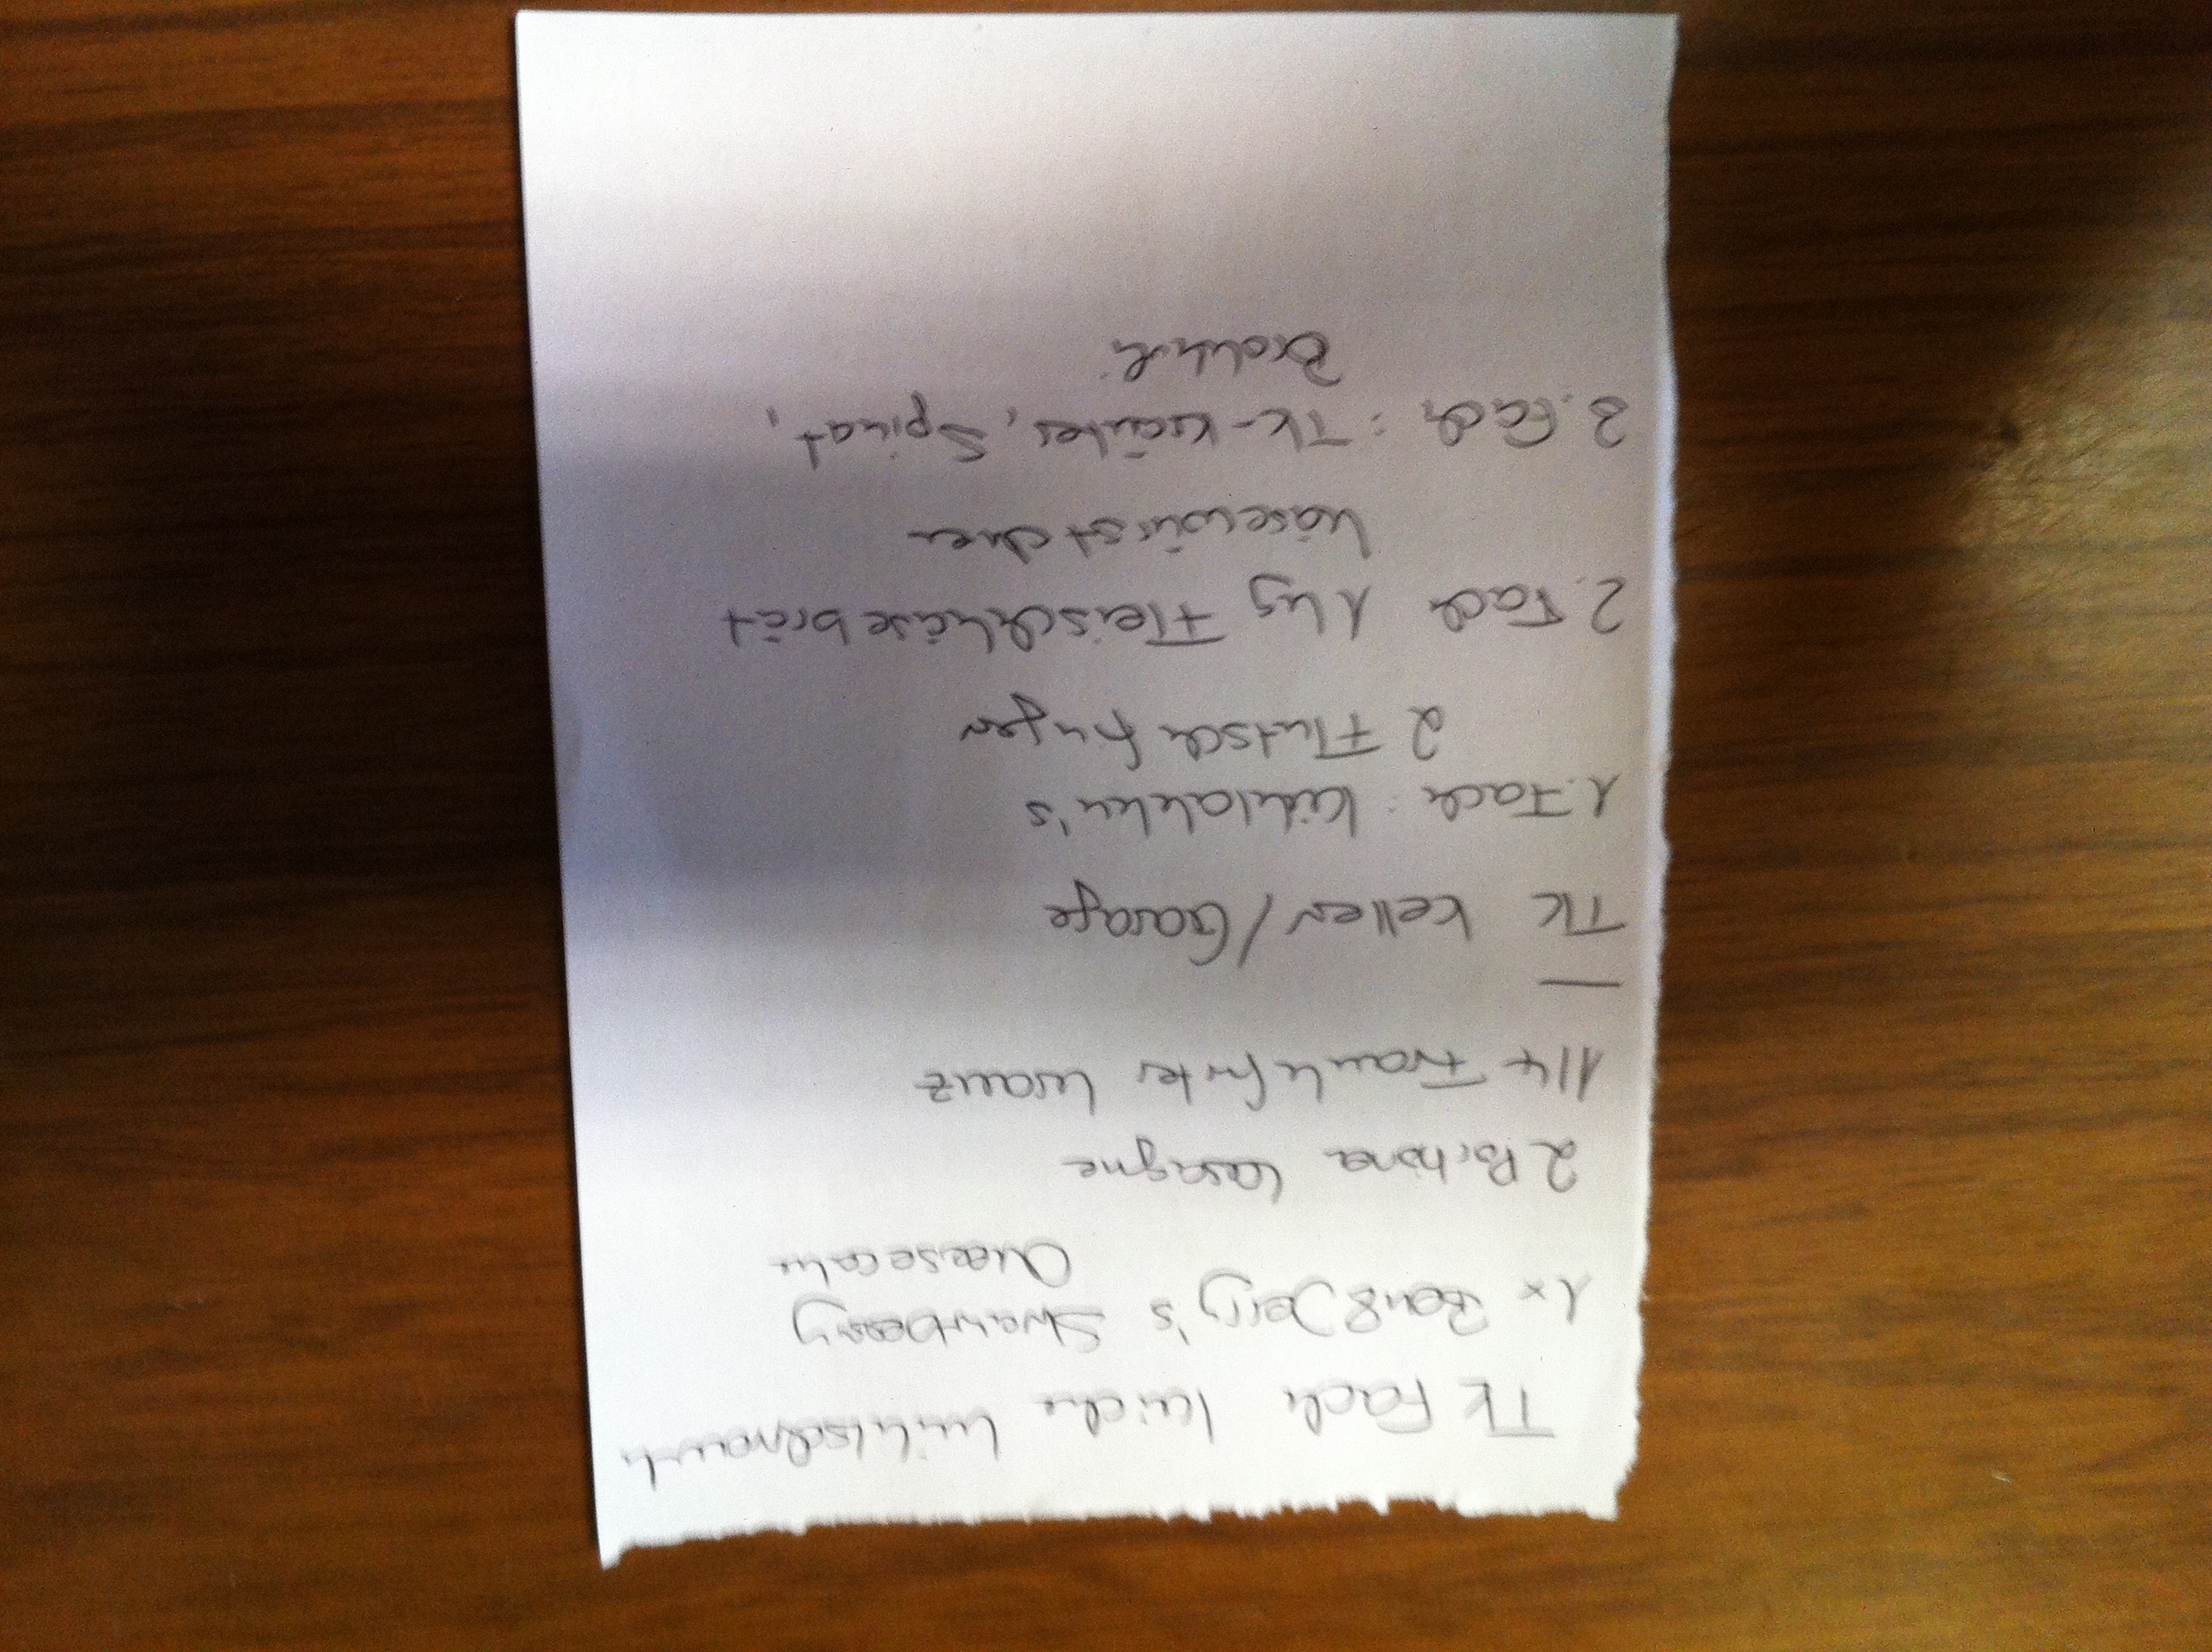 TK Fach Küche Kühlschrank
1x Ben&Jerry's Strawberry
Cheesecake
2 Portionen Lasagne
1/4 Frankfurter Kranz
—
TK Keller/Garage
1. Fach: Kühlakku's
2 Flutschfinger
2. Fach 1kg Fleischkäsebrät
Käsewürstchen
3. Fach: TK-Kräuter, Spinat,